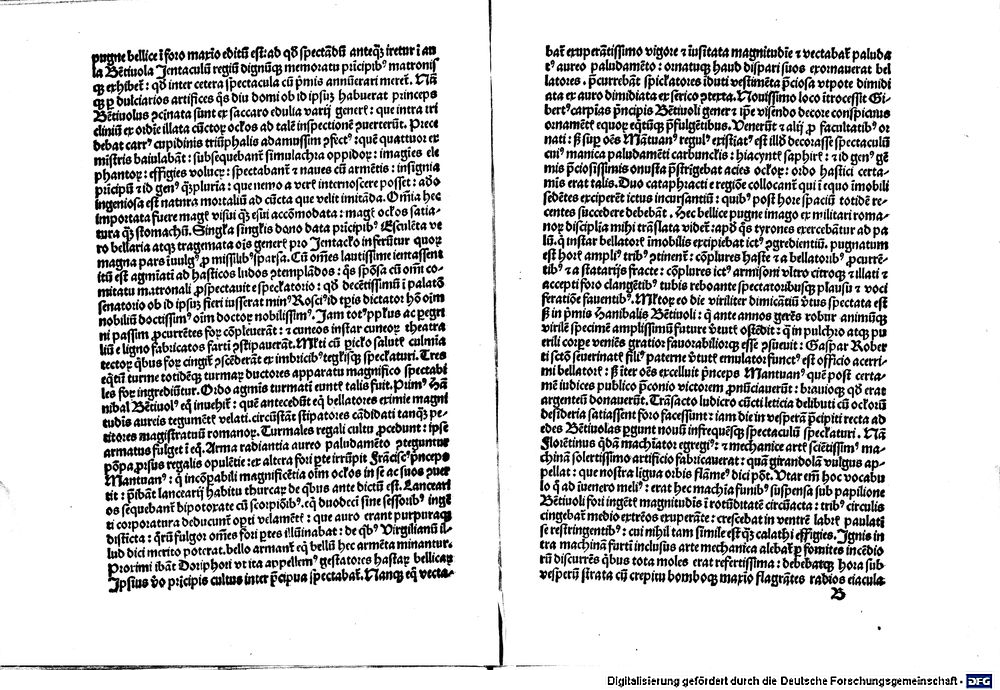 pugne bellice ĩ foro maxĩo editũ est: ad qđ spectãdũ anteqꝫ iretur ĩ au
la Bẽtiuola Jentaculũ regiũ dignũqꝫ memoratu pricipibꝰ matronis
qꝫ exhibet̃: qđ inter cetera spectacula cũ p̃mis annũerari meret̃. Nã
qꝫ ꝑ dulciarios artifices q̃s diu domi ob id ipsuꝫ habuerat princeps
Bẽtiuolus ꝯcinata sunt ex saccaro edulia varij gener̃: que intra tri
cliniũ ex ordĩe illata cũctoꝝ oc̃los ad talẽ inspectionẽ ꝯuerterũt. Prece
debat carrꝰ cupidinis triũphalis adamussim ꝑfectꝰ: quẽ quattuor ex
mĩstris baiulabãt: subsequebant̃ simulachra oppidoꝝ: imagĩes ele
phantoꝝ: effigies volucꝝ: spectabant̃ ⁊ naues cũ armẽtis: insignia
pricipũ ⁊ id genꝰ q̃ꝫpluria: que nemo a vere internoscere posset: adeo
ingeniosa est natura mortaliũ ad cũcta que velit imitãda. Oĩa hec
importata fuere mage visui qꝫ esui accõmodata: mage oc̃los satia-
tura qꝫ stomachũ. Singľa singľis dono data pricipibꝰ. Esculẽta ve
ro bellaria atqꝫ tragemata oĩs gener̃ pro Jentac̃lo inferũtur quoꝝ
magna pars ĩuulgꝰ ꝓ missilibꝰ sparsa. Cũ oẽs lautissime ientassent
itũ est agmĩati ad hasticos ludos ꝯtemplãdos: q̃s spõsa cũ oĩ co-
mitatu matronali ꝓspectauit e spectac̃lorio: qđ decẽtissimũ ĩ palatõ
senatorio ob id ipsuꝫ fieri iusserat minꝰ Rosciꝰ id tp̃is dictator hõ oĩm
nobiliũ doctissimꝰ oĩm doctoꝝ nobilissimꝰ. Jam totꝰ pp̃lus ac pegri
ni passim ꝓcurrẽtes for̃ cõpleuerãt: ⁊ cuneos instar cuneoꝝ theatra
liũ e ligno fabricatos farti ꝯstipauerãt. Ml̃ti cũ pic̃lo salutẽ culmia
tectoꝝ q̃bus for̃ cingit̃ ꝯscẽderãt ex imbricibꝰ tegľisqꝫ spectaturi. Tres
eq̃tũ turme totidẽqꝫ turmaꝝ ductores apparatu magnifico spectabi
les for̃ ingrediũtur. Ordo agmĩs turmati eunt̃ talis fuit. Primꝰ Hã
nibal Bẽtiuolꝰ eq̃ inuehit̃: quẽ antecedũt eq̃ bellatores eximie magni
tudis aureis tegumẽt̃ velati. circũstãt stipatores cãdidati tanqꝫ pe-
titores magistratuũ romanoꝝ. Turmales regali cultu ꝓcedunt: ipse
armatus fulget ĩ eq̃. Arma radiantia aureo paludamẽto ꝯteguntur
põpa ꝓrsus regalis opulẽtie: ex altera fori pte irrũpit Frãciscꝰ p̃nceps
Mantuanꝰ: q̃ incõpabili magnificẽtia oĩm oc̃los in se ac suos ꝯuer
tit: p̃ibãt lancearij habitu thurcaꝝ de q̃bus ante dictũ est. Lanceari
os sequebant̃ hipotoxate cũ scorpiõibꝰ. eq̃ duodecĩ sine sessoribꝰ ingẽ
ti corporatura deducunt̃ opti velamẽt̃: que auro erant purpuraqꝫ
distĩcta: qr̃ũ fulgor oẽs fori ptes illũinabat: de q̃bꝰ Virgilianũ il-
lud dici merito poterat. bello armant̃ eq̃ bellũ hec armẽta minantur.
Proximi ibãt Doriphori vt ita appellemꝰ gestatores hastaꝝ bellicaꝝ
Ipsius ṽo pricipis cultus inter p̃cipua spectabat̃. Nanqꝫ eq̃ vecta-
bat̃ exuperãtissimo vigore ⁊ iusitata magnitudĩe ⁊ vectabat̃ paluda
tꝰ aureo paludamẽto: ornatuqꝫ haud dispari suos exornauerat bel
latores. ꝓcurrebãt spic̃latores ĩduti vestimẽta p̃ciosa vtpote dimidi
ata ex auro dimidiata ex serico ꝯtexta. Nouissimo loco ĩtrocessit Gi-
bertꝰ carpias p̃ncipis Bẽtiuoli gener ⁊ ip̃e visendo decore conspicuus
ornamẽt̃ equoꝝ eq̃tũqꝫ p̃fulgẽtibus. Venerũt ⁊ alij ꝓ facultatibꝰ or
nati: ß sup oẽs Mãtuanꝰ regulꝰ existĩat̃ est illđ decorasse spectaculũ
cuiꝰ manica paludamẽti carbunc̃lis: hiacynt̃ saphir̃: ⁊ id genꝰ gẽ
mis p̃ciosissimis onusta p̃strigebat acies oc̃loꝝ: ordo hastici certa-
mis erat talis. Duo cataphracti e regiõe collocant̃ qui ĩ equo ĩmobili
sedẽtes exciperẽt ictus incursantiũ: quibꝰ post hore spaciũ totidẽ re-
centes succedere debebãt. Hec bellice pugne imago ex militari roma-
noꝝ discipľia mihi trãslata videt̃: apđ q̃s tyrones exercebãtur ad pa
lũ. q̃ instar bellator̃ ĩmobilis excipiebat ictꝰ ꝯgredientiũ. pugnatum
est horẽ ampliꝰ tribꝰ ꝯtinent̃: cõplures haste ⁊ a bellatoribꝰ ꝓcurrẽ-
tibꝰ ⁊ a statarijs fracte: cõplures ictꝰ armisoni vltro citroqꝫ ⁊ illati ⁊
accepti foro clangẽtibꝰ tubis reboante spectatoribusqꝫ plausu ⁊ voci
feratiõe fauentibꝰ. Ml̃toꝝ eo die viriliter dimicãtiũ ṽtus spectata est
ß in p̃mis Hanibalis Bẽtiuoli: q̃ ante annos ger̃ẽs robur animũqꝫ
virilẽ specimẽ amplissimũ future ṽtut̃ ostẽdit: q̃ in pulchro atqꝫ pu
erili corpe veniẽs gratior fauorabiliorqꝫ esse ꝯsueuit: Gaspar Rober
ti sctõ seuerinat̃ filiꝰ paterne ṽtut̃ emulator functꝰ est officio acerri-
mi bellatorẽ: ß iter oẽs excelluit p̃nceps Mantuanꝰ quẽ post certa-
mẽ iudices publico p̃conio victorem ꝓnũciauerũt: brauioqꝫ qđ erat
argenteũ donauerũt. Trãsacto ludicro cũcti leticia delibuti cũ oc̃lorũ
desideria satiassent foro facessunt: iam die in vesperã p̃cipiti recta ad
edes Bẽtiuolas ꝑgunt nouũ infrequẽsqꝫ spectaculũ spectaturi. Nã
Florẽtinus q̃dã machĩator egregiꝰ: ⁊ mechanice artẽ sciẽtissimꝰ ma-
chinã solertissimo artificio fabricauerat: quã girandolã vulgus ap-
pellat: que nostra lĩgua orbis flamẽꝰ dici põt. Vtar eĩ hoc vocabu
lo q̃ ad iuenero meliꝰ: erat hec machĩa funibꝰ suspensa sub papilione
Bẽtiuoli fori ingẽt̃ magnitudis ĩ rotũditatẽ circũacta: tribꝰ circulis
cingebat̃ medio extrẽos exuperãte: crescebat in ventrẽ labr̃ paulatĩ
se restringentibꝰ: cui nihil tam simile est qꝫ calathi effigies. Ignis in
tra machinã furtĩ inclusus arte mechanica alebat̃ ꝑ fomites incẽdio
rũ discurrẽs q̃bus tota moles erat refertissima: debebatqꝫ hora sub
vesperũ strata cũ crepitu bomboqꝫ maxĩo flagrãtes radios eiacula
B
Digitalisierung gefördert durch die Deutsche Forschungsgemeinschaft - DFG